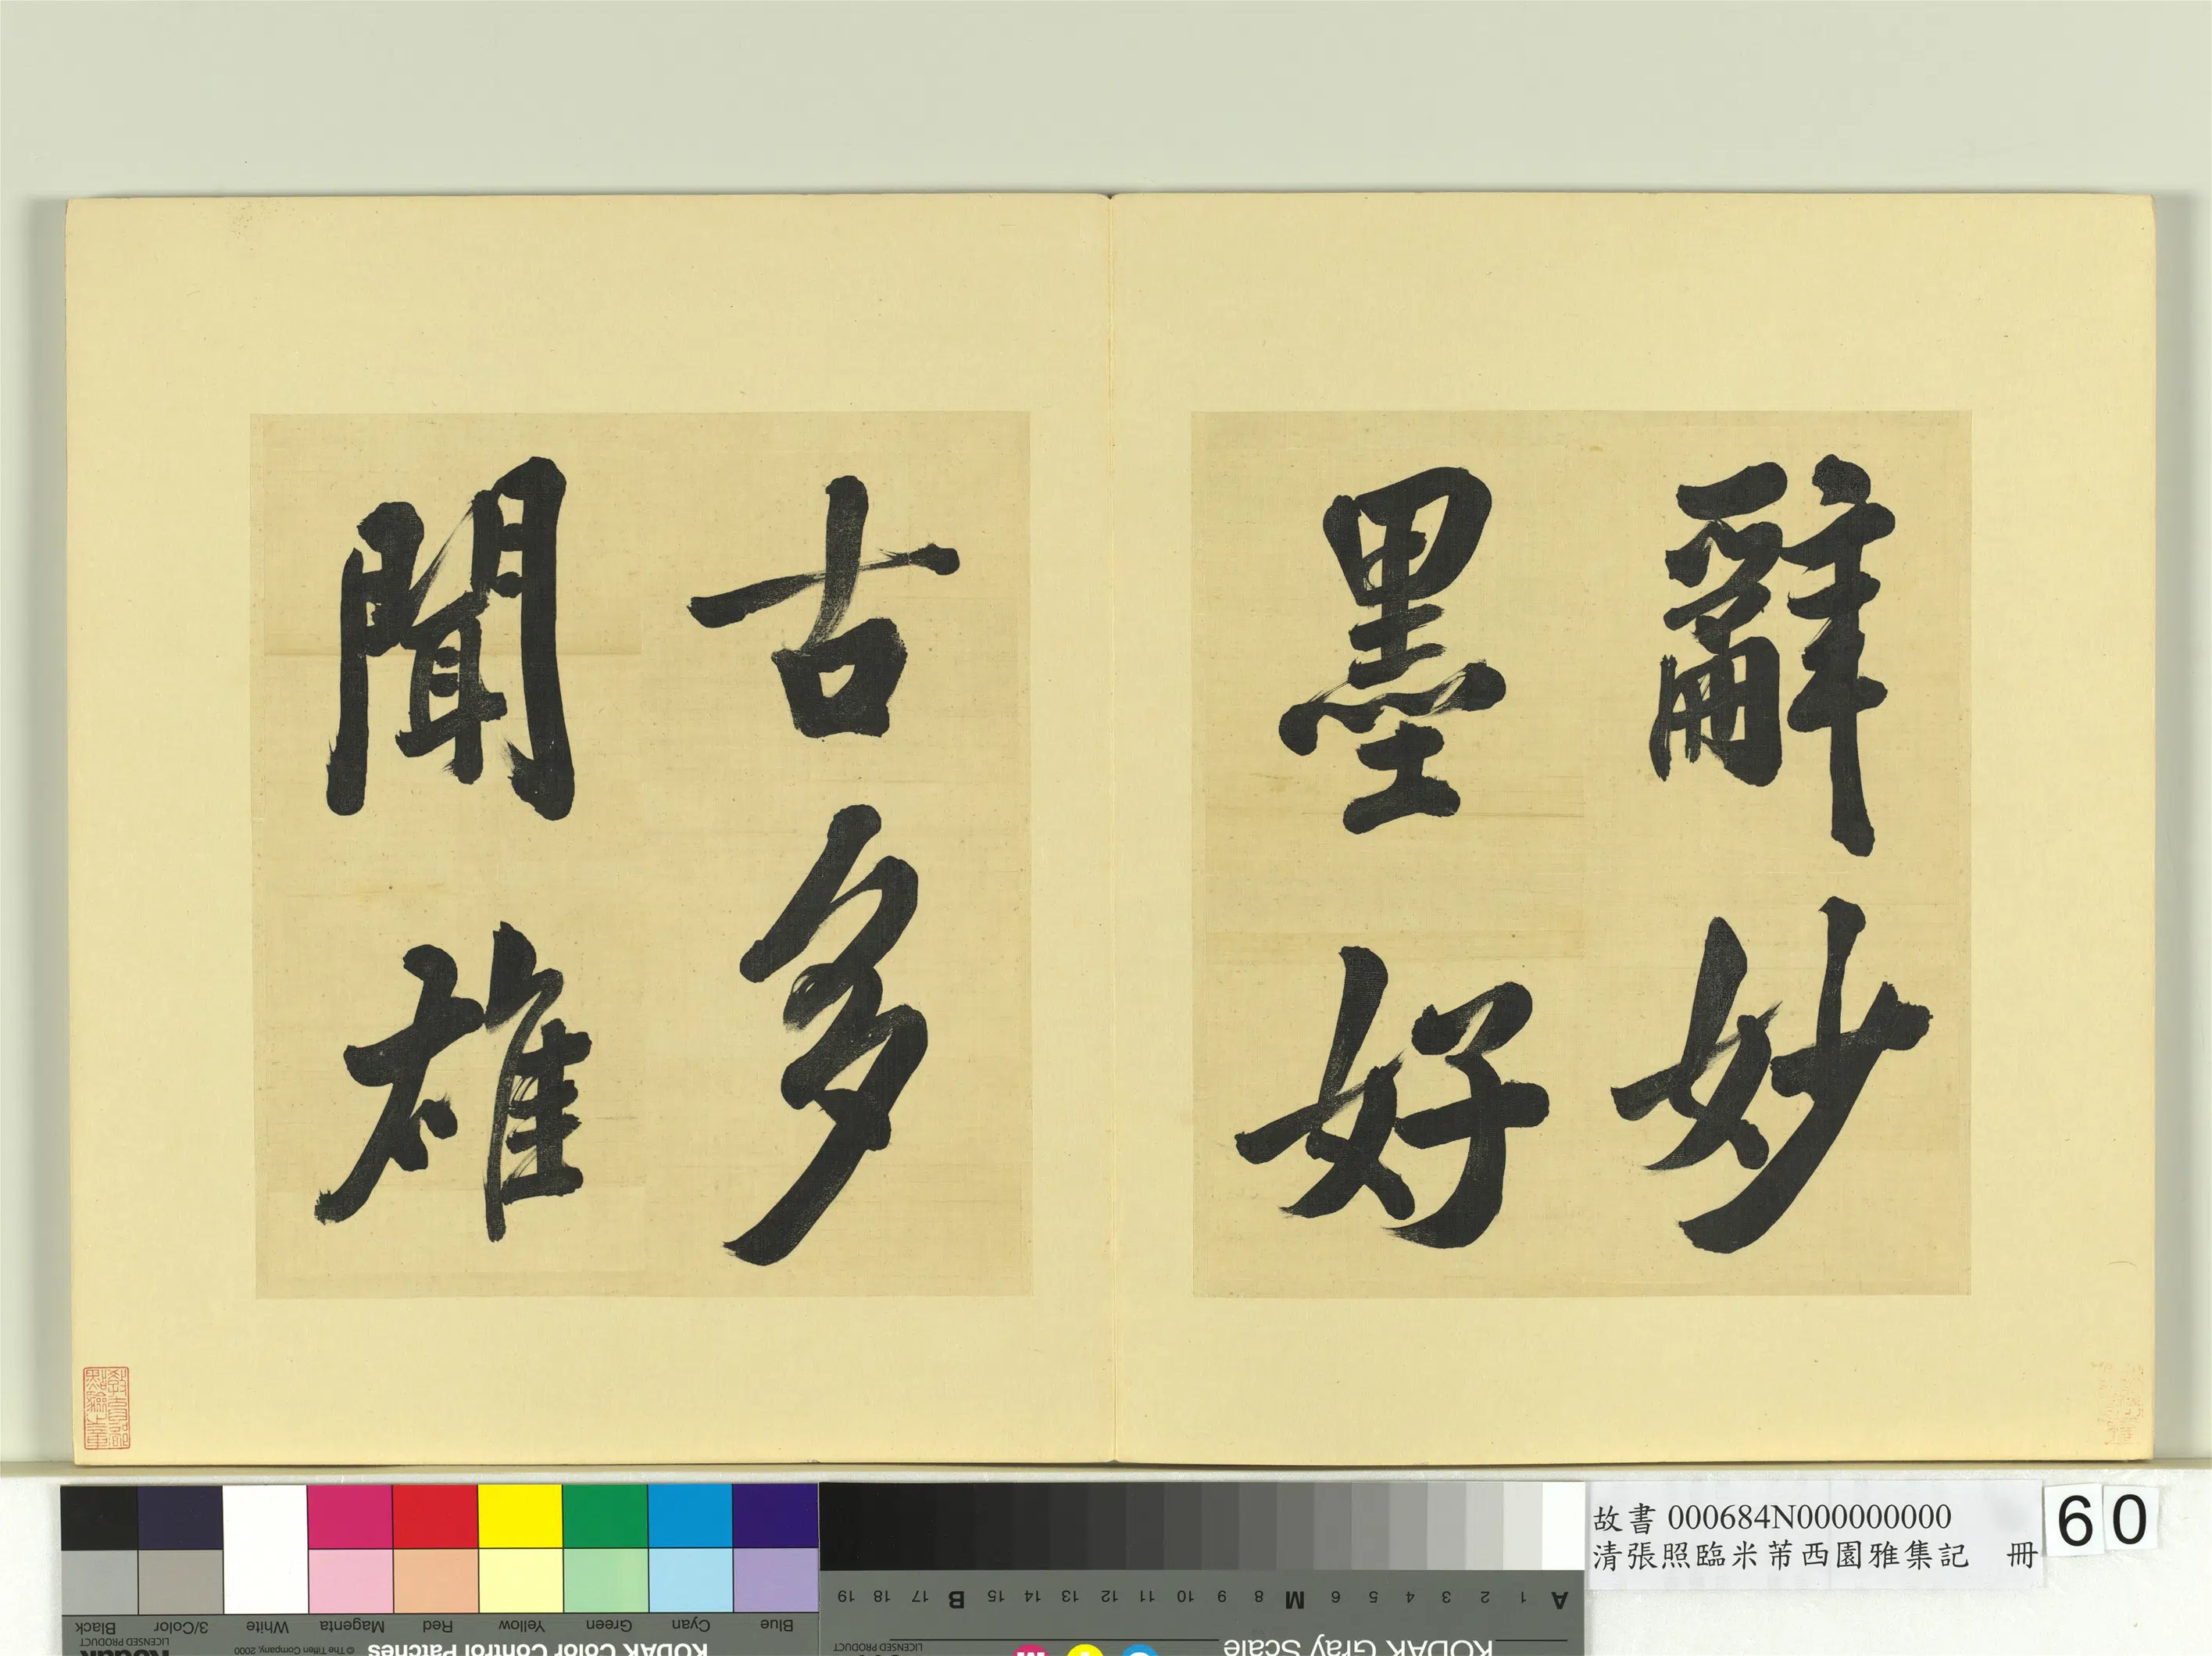 辭妙
墨好
古多
聞雄
故書 000684N000000000
清張照臨米芾西園雅集記 冊
60
Black
3/Color
White
Magenta
Red
Yellow
Green
Cyan
Blue
LICENSED PRODUCT
© The Tiffen Company, 2000
KODAK Color Control Patches
Kodak
A 1 2 3 4 5 6 M 8 9 10 11 12 13 14 15 B 17 18 19
KODAK Gray Scale
LICENSED PRODUCT